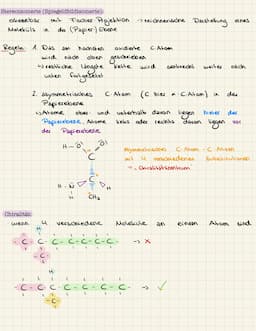 Stereoisomerie (Spiegelbildisomerie):
erkennbar mit Fischer-Projektion → vereinfachte Darstellung eines
Moleküls in die (Papier-) Ebene
Regeln 1. Das am höchsten oxidierte C-Atom
wird nach oben geschrieben
↳ restliche längste Kette wird senkrecht weiter nach
unten fortgesetzt
2. asymmetrisches C-Atom (C hier *C-Atom) in der
Papierebene
↳ Atome ober- und unterhalb davon liegen hinter der
Papierebene, Atome links oder rechts davon liegen vor
der Papierebene
H-O O
C
asymmetrisches C-Atom - C-Atom
mit 4 verschiedenen Substituenten
→ Chiralitätszentrum
H-N C H
H CH₃
Chiralität:
wenn 4 verschiedene Moleküle an einem Atom sind
H
-C-C-C-C-C-C- → X
-C-
H
-C-C-C-C-C-C-C- → ✓
-C-